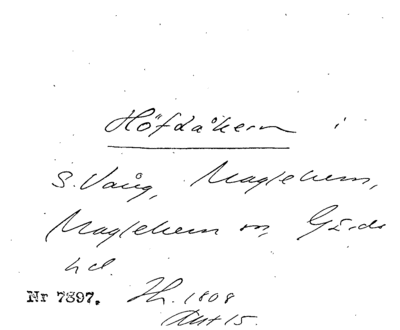 Höfdåkern i
S. Vång, Maglehem,
Maglehem sn, Gärds
hd.
Nr 7397. Hh. 1808
Akt 15.